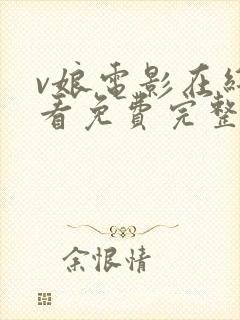 v娘电影在线
看免费完整
余恨情